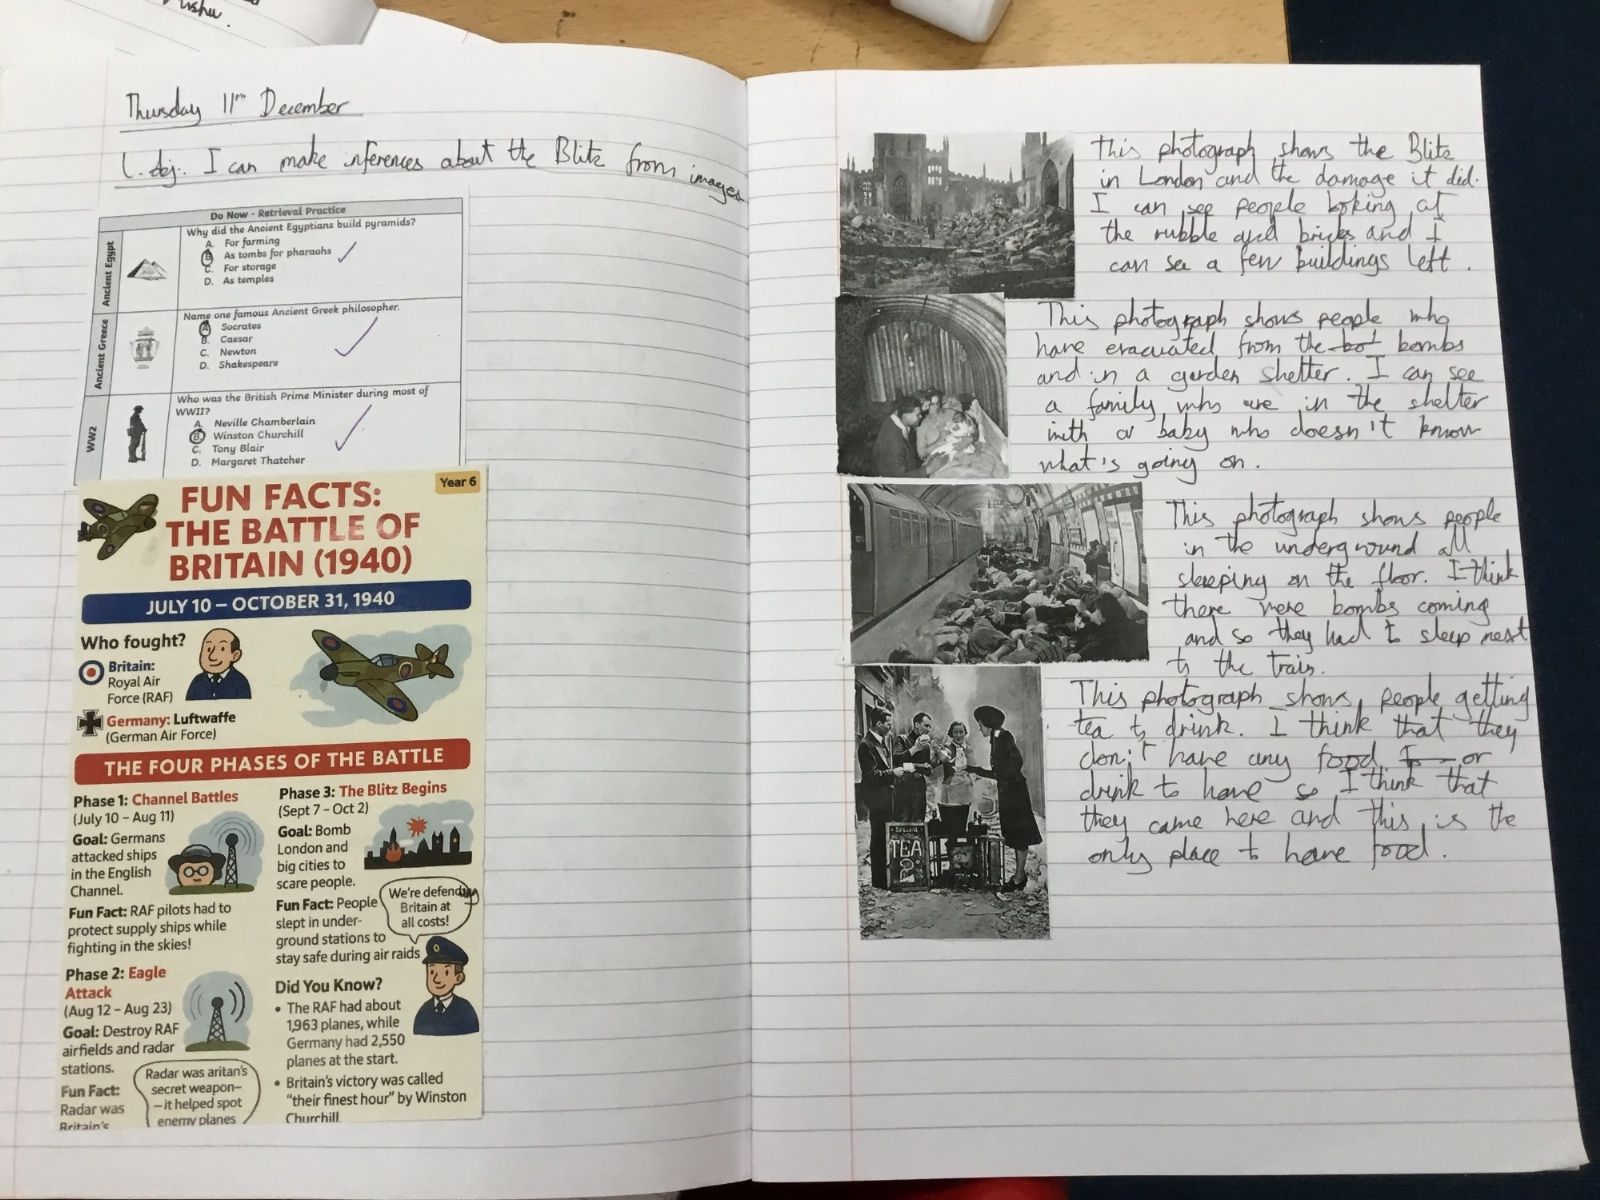 Thursday 11th December
L. obj: I can make inferences about the Blitz from images
Do Now - Retrieval Practice
Ancient Egypt
Why did the Ancient Egyptians build pyramids?
A. For farming
B. As tombs for pharaohs
C. For storage
D. As temples
Ancient Greece
Name one famous Ancient Greek philosopher.
A. Socrates
B. Caesar
C. Newton
D. Shakespeare
WW2
Who was the British Prime Minister during most of
WWII?
A. Neville Chamberlain
B. Winston Churchill
C. Tony Blair
D. Margaret Thatcher
Year 6
FUN FACTS:
THE BATTLE OF
BRITAIN (1940)
JULY 10 – OCTOBER 31, 1940
Who fought?
Britain:
Royal Air
Force (RAF)
Germany: Luftwaffe
(German Air Force)
THE FOUR PHASES OF THE BATTLE
Phase 1: Channel Battles
(July 10 – Aug 11)
Goal: Germans
attacked ships
in the English
Channel.
Fun Fact: RAF pilots had to
protect supply ships while
fighting in the skies!
Phase 2: Eagle
Attack
(Aug 12 – Aug 23)
Goal: Destroy RAF
airfields and radar
stations.
Fun Fact:
Radar was
Britain's
Radar was aritan's
secret weapon–
–it helped spot
enemy planes
Phase 3: The Blitz Begins
(Sept 7 – Oct 2)
Goal: Bomb
London and
big cities to
scare people.
Fun Fact: People
slept in under-
ground stations to
stay safe during air raids
We're defending
Britain at
all costs!
Did You Know?
• The RAF had about
1,963 planes, while
Germany had 2,550
planes at the start.
• Britain's victory was called
"their finest hour" by Winston
Churchill
This photograph shows the Blitz
in London and the damage it did.
I can see people looking at
the rubble and bricks and I
can see a few buildings left.
This photograph shows people who
have evacuated from the bot bombs
and in a garden shelter. I can see
a family who are in the shelter
with a baby who doesn't know
what's going on.
This photograph shows people
in the underground all
sleeping on the floor. I think
there were bombs coming
and so they had to sleep next
to the train.
This photograph shows people getting
tea to drink. I think that they
don't have any food or
drink to have so I think that
they came here and this is the
only place to have food.
SPECIAL
TEA
2D